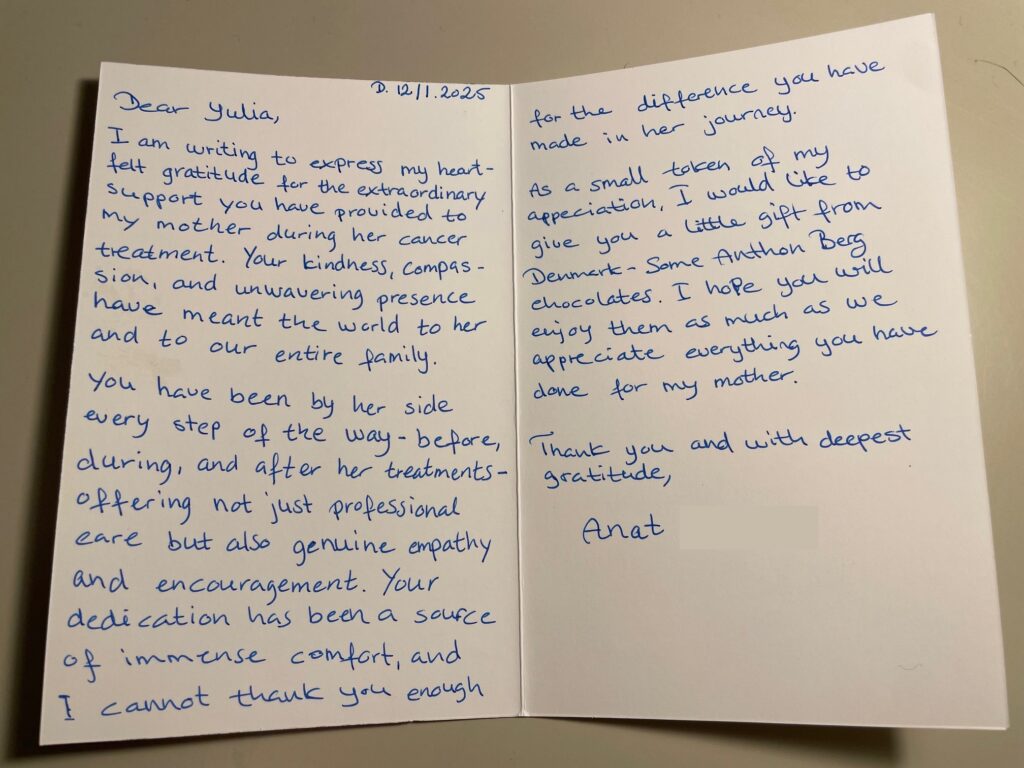 D. 12/1.2025
Dear Yulia,
I am writing to express my heart-
felt gratitude for the extraordinary
support you have provided to
my mother during her cancer
treatment. Your kindness, compas-
sion, and unwavering presence
have meant the world to her
and to our entire family.
You have been by her side
every step of the way - before,
during, and after her treatments -
offering not just professional
care but also genuine empathy
and encouragement. Your
dedication has been a source
of immense comfort, and
I cannot thank you enough
for the difference you have
made in her journey.
As a small token of my
appeciation, I would like to
give you a little gift from
Denmark - Some Anthon Berg
chocolates. I hope you will
enjoy them as much as we
appreciate everything you have
done for my mother.
Thank you and with deepest
gratitude,
Anat